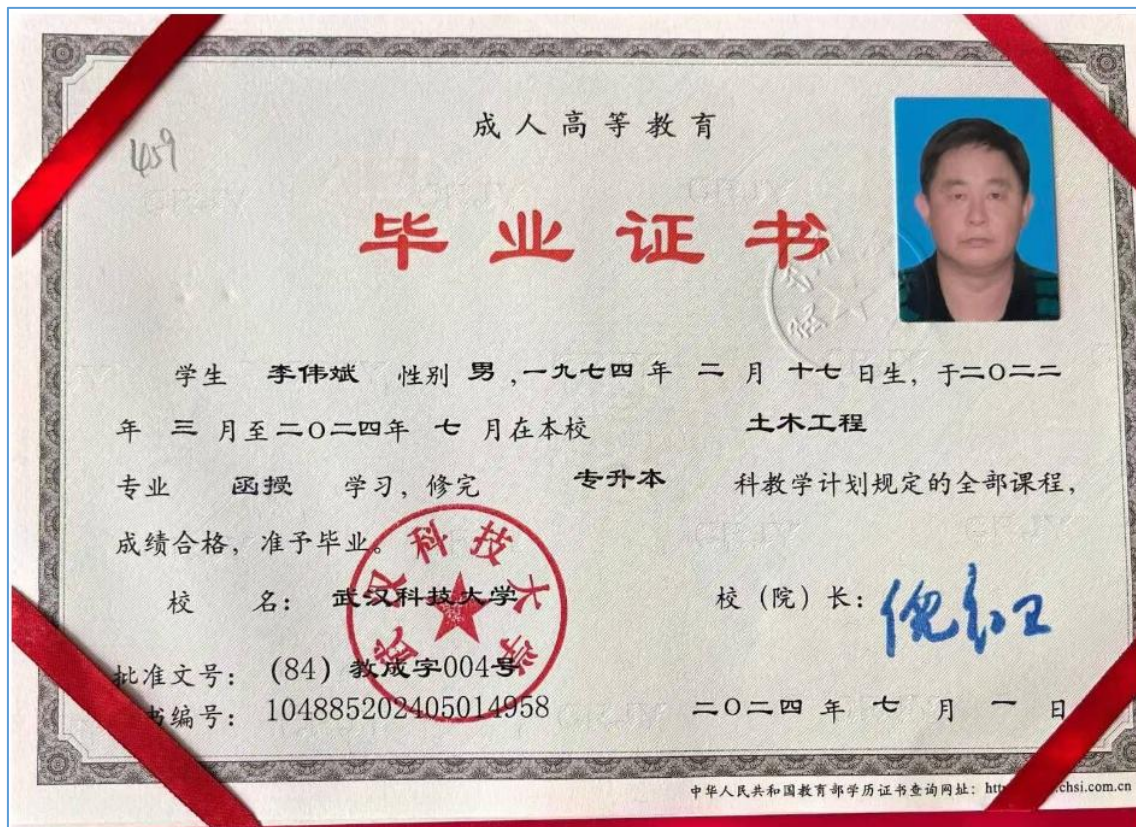 成人高等教育
459
毕业证书
学生 李伟斌 性别 男，一九七四年 二 月 十七 日生，于二〇二二
年 三 月至二〇二四年 七 月在本校 土木工程
专业 函授 学习，修完 专升本 科教学计划规定的全部课程，
成绩合格，准予毕业。
武汉科技大学
校 名： 武汉科技大学 校（院）长：
批准文号：（84）教成字004号
书编号：104885202405014958 二〇二四 年 七 月 一 日
中华人民共和国教育部学历证书查询网址：htt chsi.com.cn